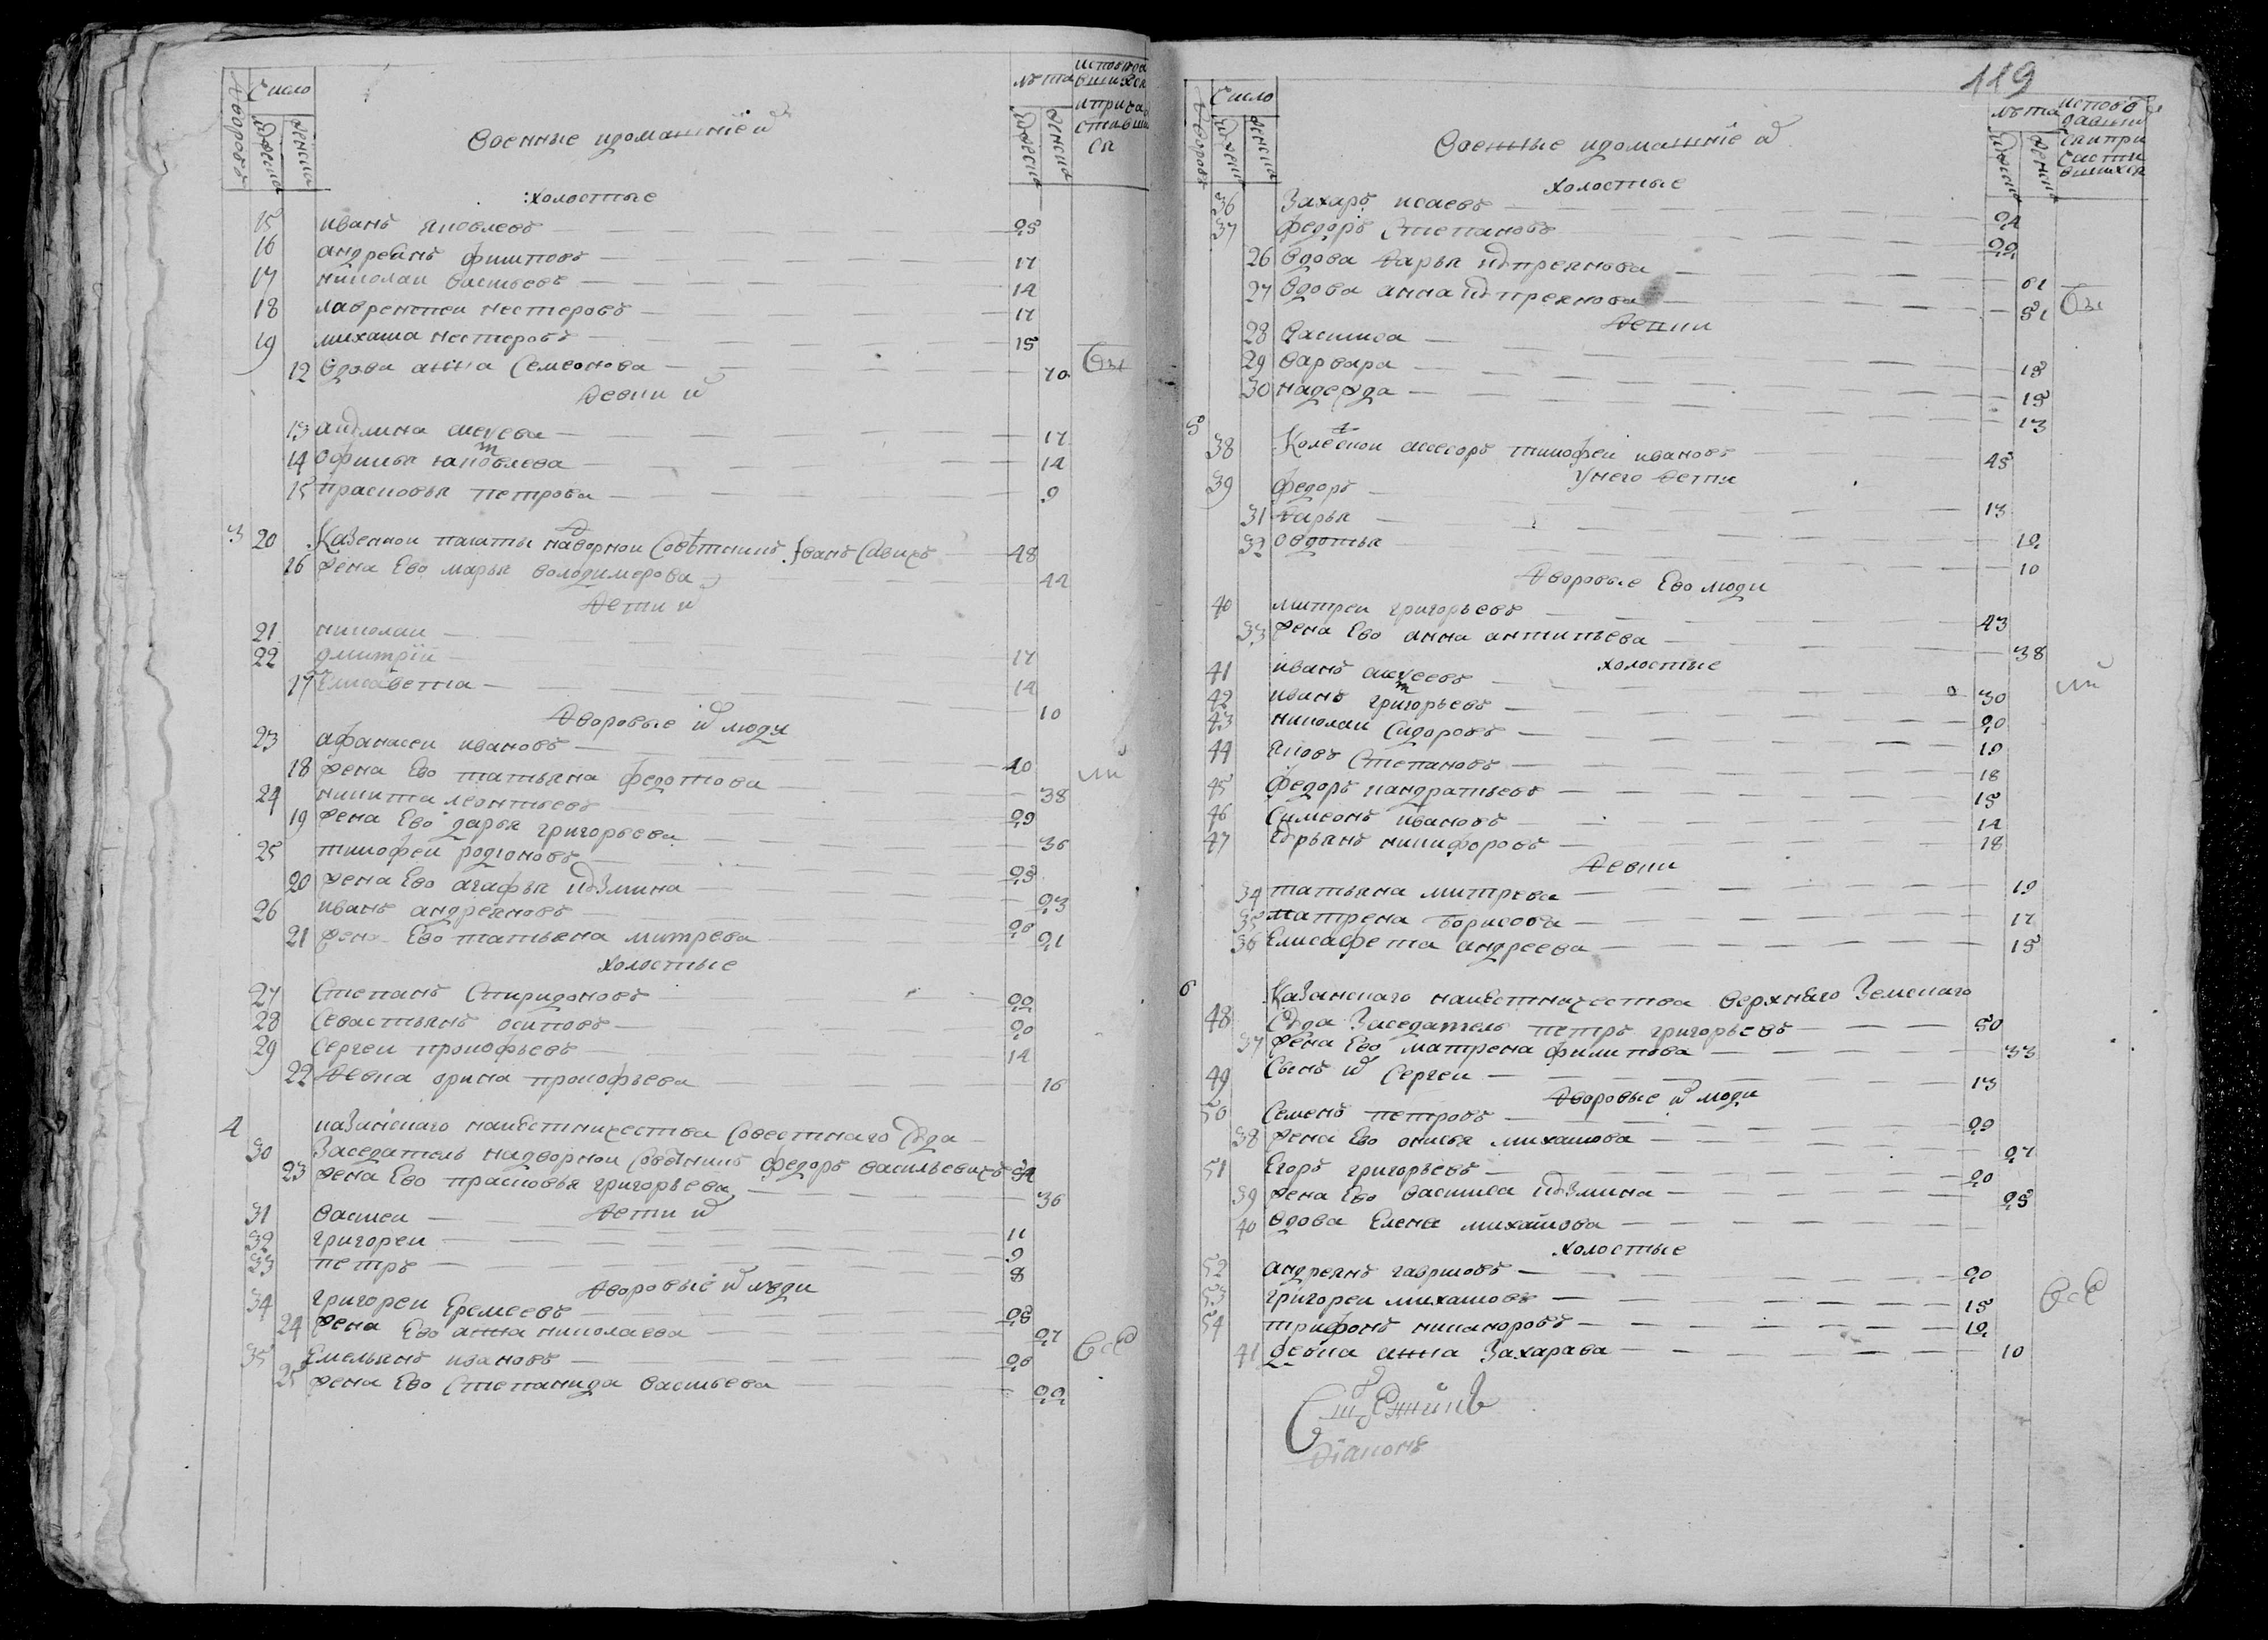 Число
лѣта
исповѣда
вшихся
и прича
стивши
ся
дворовъ
мужеска
женска
мужеска
женска
Военные и домашніе их
холостые
15 иванъ яковлевъ 25
16 андреянъ филиповъ 17
17 николаи васильевъ 14
18 лаврентеи нестеровъ 17
19 михаила нестеровъ 15
12 вдова анна Семеонова 70
девки их
13 акулина алексеева 17
14 офимья яковлева 14
15 прасковья петрова 9
3 20 Казеннои палаты надворнои Советникъ Iванъ Савичъ 48
16 жена Ево марья володимерова 44
дети их
21 николаи 17
22 дмитрїи 14
17 Елисавета 10
дворовые их люди
23 афанасеи ивановъ 40
18 жена Ево татьяна федотова 38
24 никита леонтьевъ 29
19 жена Ево дарья григорьева 36
25 тимофеи родионовъ 25
20 жена Ево агафья кузмина 23
26 иванъ андреяновъ 20
21 жена Ево татьяна митрева 21
холостые
27 Степанъ Спиридоновъ 22
28 Севастьянъ осиповъ 20
29 Сергеи прокофьевъ 14
22 девка орина прокофьева 16
4 казанскаго наместничества Совестнаго Суда
30 Заседатель надворнои Советникъ федоръ васильевичъ 54
23 жена Ево прасковья григорьева 36
дети их
31 василеи 11
32 григореи 9
33 петръ 8
дворовые их люди
34 григореи Еремеевъ 28
24 жена Ево анна николаева 27
35 Емельянъ ивановъ 26
25 жена Ево Степанида васильева 22
119
Число
лѣта
исповѣ
давших
ся и при
части
вшихся
дворовъ
мужеска
женска
мужеска
женска
Военные и домашніе их
холостые
36 Захаръ исаевъ 24
37 федоръ Степановъ 22
26 вдова дарья купреянова 61
27 вдова анна купреянова 51
девки
28 василиса 18
29 варвара 15
30 надежда 13
5 38 Колескои асесоръ тимофеи ивановъ 45
У него дети
39 федоръ 13
31 дарья 12
32 овдотья 10
дворовые Ево люди
40 митреи григорьевъ 43
33 жена Ево анна антипьева 38
холостые
41 иванъ алексеевъ 30
42 иванъ григорьевъ 20
43 николаи Сидоровъ 19
44 яковъ Степановъ 18
45 федоръ кандратьевъ 15
46 Симеонъ ивановъ 14
47 Курьянъ никифоровъ 18
девки
34 татьяна митрева 19
35 матрена борисова 17
36 Елисафета андреева 15
6 Казанскаго наместничества верхняго Земскаго
48 Суда Заседатель петръ григорьевъ 50
37 жена Ево матрена филипова 33
49 Сынъ их Сергеи 13
дворовые их люди
50 Семенъ петровъ 29
38 жена Ево онисья михаилова 27
51 Егоръ григорьевъ 20
39 жена Ево василиса кузмина 25
40 вдова Елена михаилова
холостые
52 андреянъ гавриловъ 20
53 григореи михаиловъ 15
54 трифонъ никаноровъ 12
41 девка анна Захарава 10
диаконъ